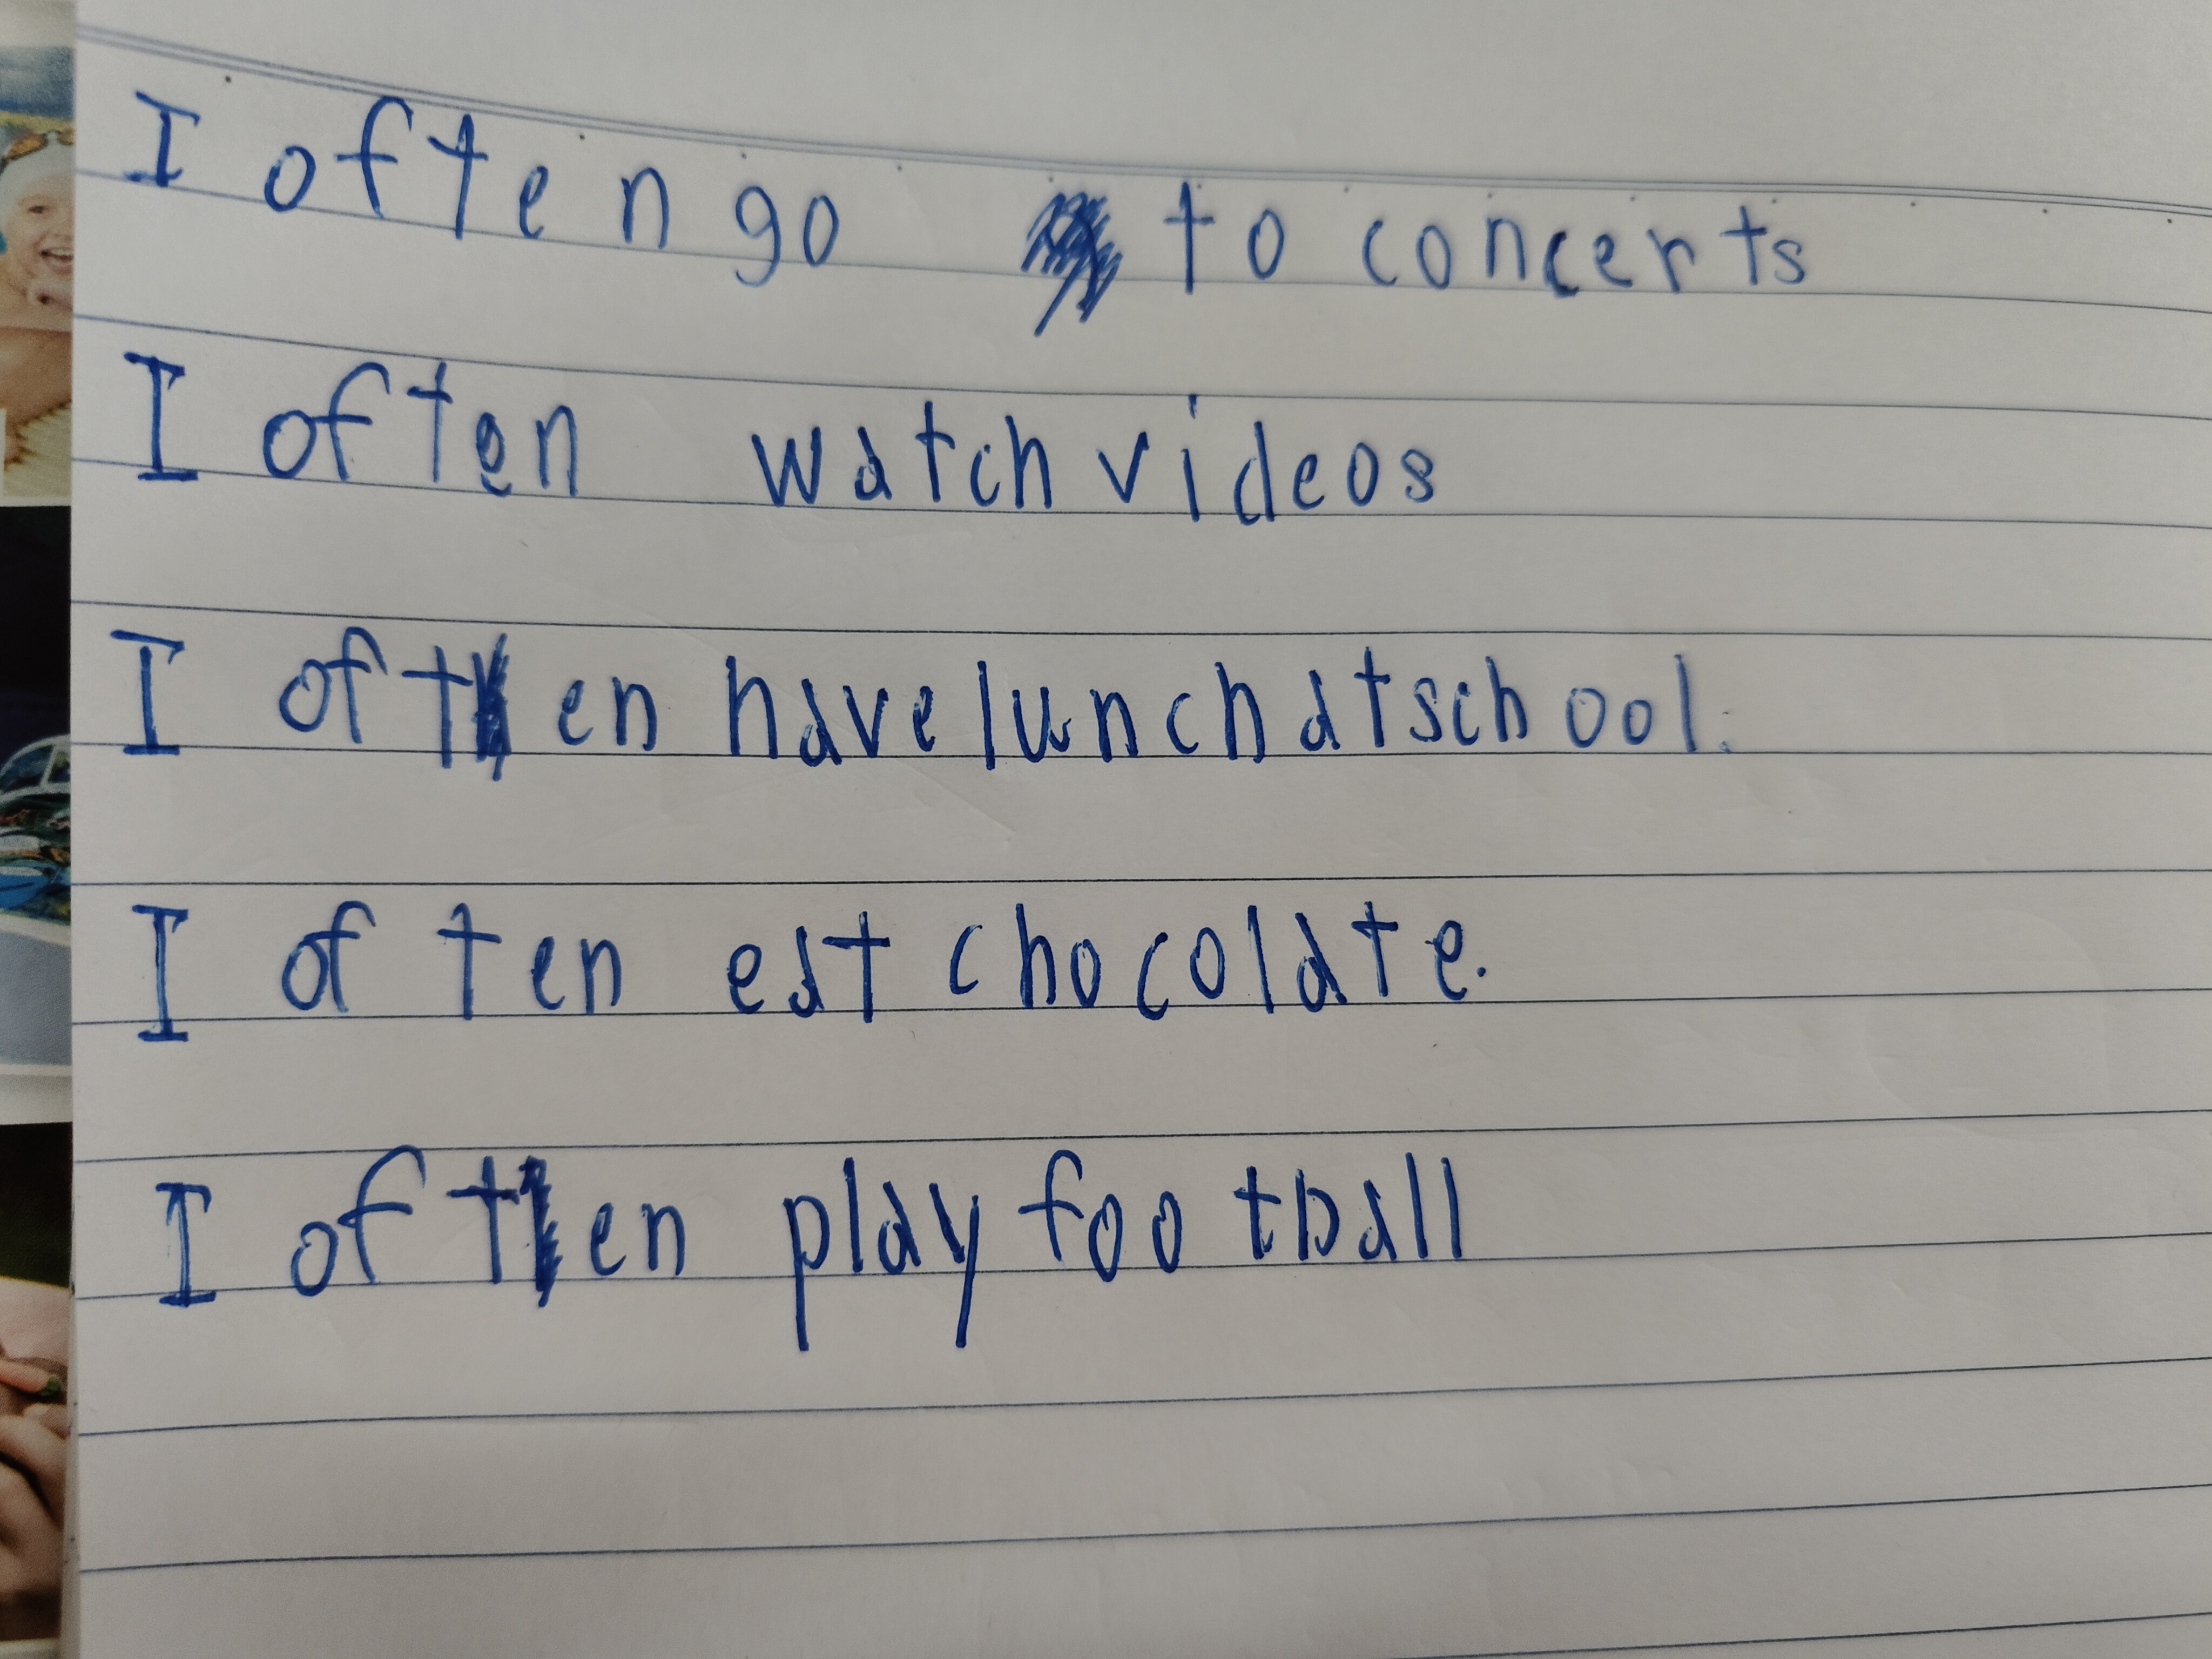 I often go to concerts
I often watch videos
I often have lunch at school.
I often eat chocolate.
I often play football